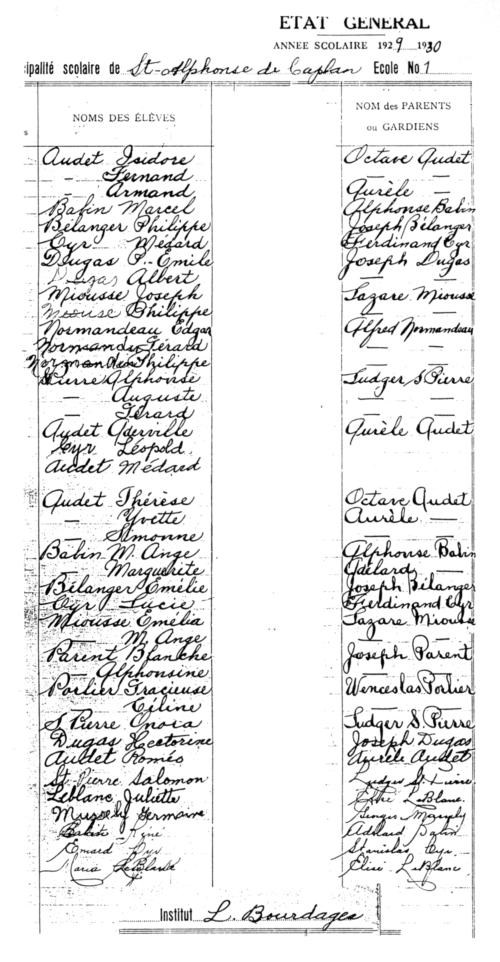 ETAT GENERAL
ANNEE SCOLAIRE 1929 1930
cipalité scolaire de St-Alphonse de Caplan Ecole No 1
NOMS DES ÉLÈVES NOM des PARENTS
ou GARDIENS
Audet Isidore Octave Audet
— Fernand —
— Armand Aurèle —
Babin Marcel Alphonse Babin
Bélanger Philippe Joseph Bélanger
Cyr Médard Ferdinand Cyr
Dugas P.-Emile Joseph Dugas
Dugas Albert —
Miousse Joseph Lazare Miousse
Miouse Philippe —
Normandeau Edgar Alfred Normandeau
Normandeau Gérard —
Normandeau Philippe —
St Pierre Alphonse Ludger S Pierre
— Auguste —
— Gérard —
Audet Aderville Aurèle Audet
Cyr Léopold
Audet Médard
Audet Thérèse Octave Audet
— Yvette Aurèle —
— Simonne —
Babin M. Ange Alphonse Babin
— Marguerite Adélard —
Bélanger Emélie Joseph Bélanger
Cyr Lucie Ferdinand Cyr
Miousse Emélia Lazare Miousse
— M. Ange —
Parent Blanche Joseph Parent
— Alphonsine —
Porlier Gracieuse Wenceslas Porlier
— Céline —
S Pierre Onora Ludger S Pierre
Dugas Hectorine Joseph Dugas
Audet Roméo Aurèle Audet
St-Pierre Salomon Ludger St-Pierre
Leblanc Juliette LeBlanc
Germaine
Babin René Adélard Babin
Emard Cyr Stanislas Cyr
Maria LeBlanc Elisé LeBlanc
Institut L. Bourdages